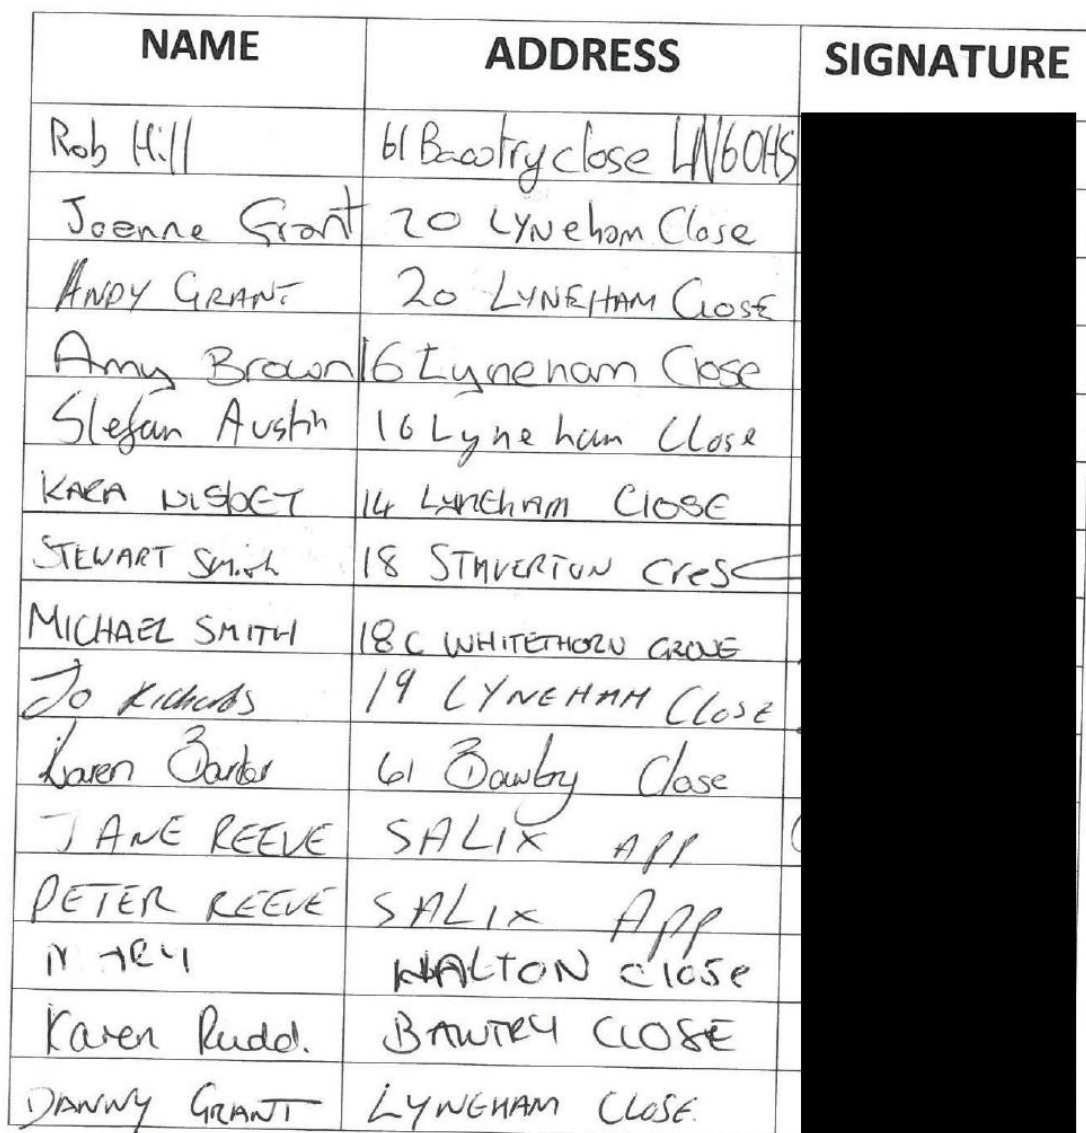 NAME ADDRESS SIGNATURE
Rob Hill 61 Bawtry close LN6 0HS
Joanne Grant 20 LYNeham Close
ANDY GRANT 20 LYNEHAM Close
Amy Brown 16 Lyneham Close
Stefan Austin 16 Lyneham Close
KARA NISBET 14 LYNEHAM ClOSE
STEWART Smith 18 STAVERTON cresc
MICHAEL SMITH 18C WHITETHORN GROVE
Jo 19 LYNEHAM Close
Karen 61 Close
JANE REEVE SALIX APP
PETER REEVE SALIX App
WALTON Close
Karen Rudd. BAWTRY CLOSE
DANNY GRANT LYNEHAM CLOSE.